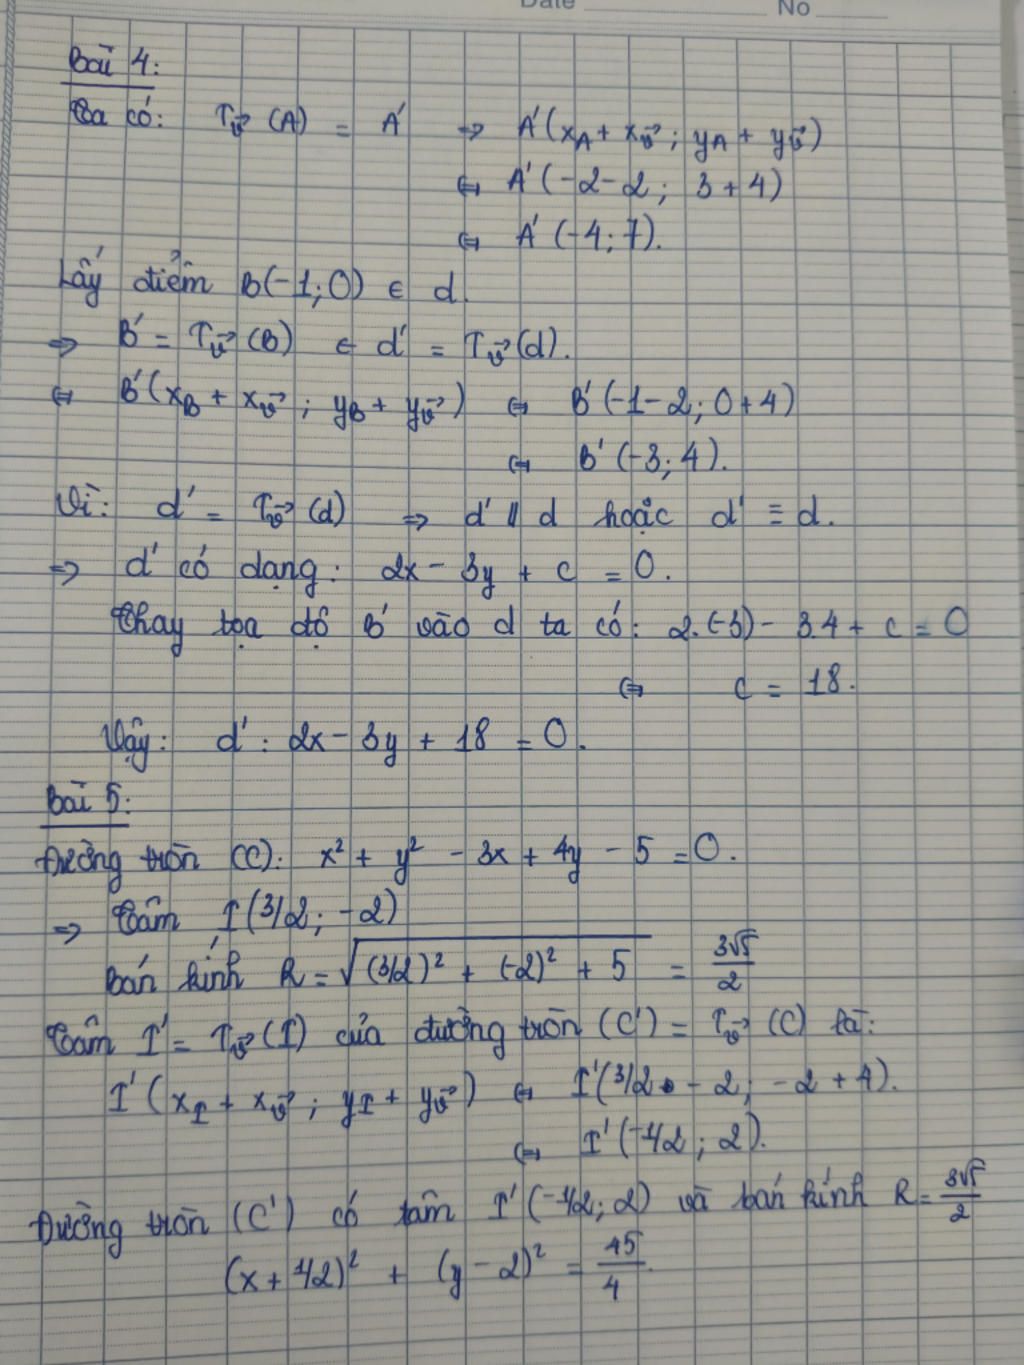 Date No
Bài 4:
Ta có: T_v⃗ (A) = A' ⇒ A'(x_A + x_v⃗ ; y_A + y_v⃗)
⇔ A'(-2-2; 3+4)
⇔ A'(-4; 7).
Lấy điểm B(-1; 0) ∈ d.
⇒ B' = T_v⃗ (B) ∈ d' = T_v⃗ (d).
⇔ B'(x_B + x_v⃗ ; y_B + y_v⃗) ⇔ B'(-1-2; 0+4)
⇔ B'(-3; 4).
Vì: d' = T_v⃗ (d) ⇒ d' // d hoặc d' ≡ d.
⇒ d' có dạng: 2x - 3y + c = 0.
Thay tọa độ B' vào d ta có: 2.(-3) - 3.4 + c = 0
⇔ c = 18.
Vậy: d': 2x - 3y + 18 = 0.
Bài 5:
Đường tròn (C): x² + y² - 3x + 4y - 5 = 0.
⇒ Tâm I(3/2; -2)
Bán kính R = √((3/2)² + (-2)² + 5) = 3√5/2
Tâm I' = T_v⃗ (I) của đường tròn (C') = T_v⃗ (C) là:
I'(x_I + x_v⃗ ; y_I + y_v⃗) ⇔ I'(3/2 - 2; -2 + 4).
⇔ I'(-1/2; 2).
Đường tròn (C') có tâm I'(-1/2; 2) và bán kính R = 3√5/2
(x + 1/2)² + (y - 2)² = 45/4.